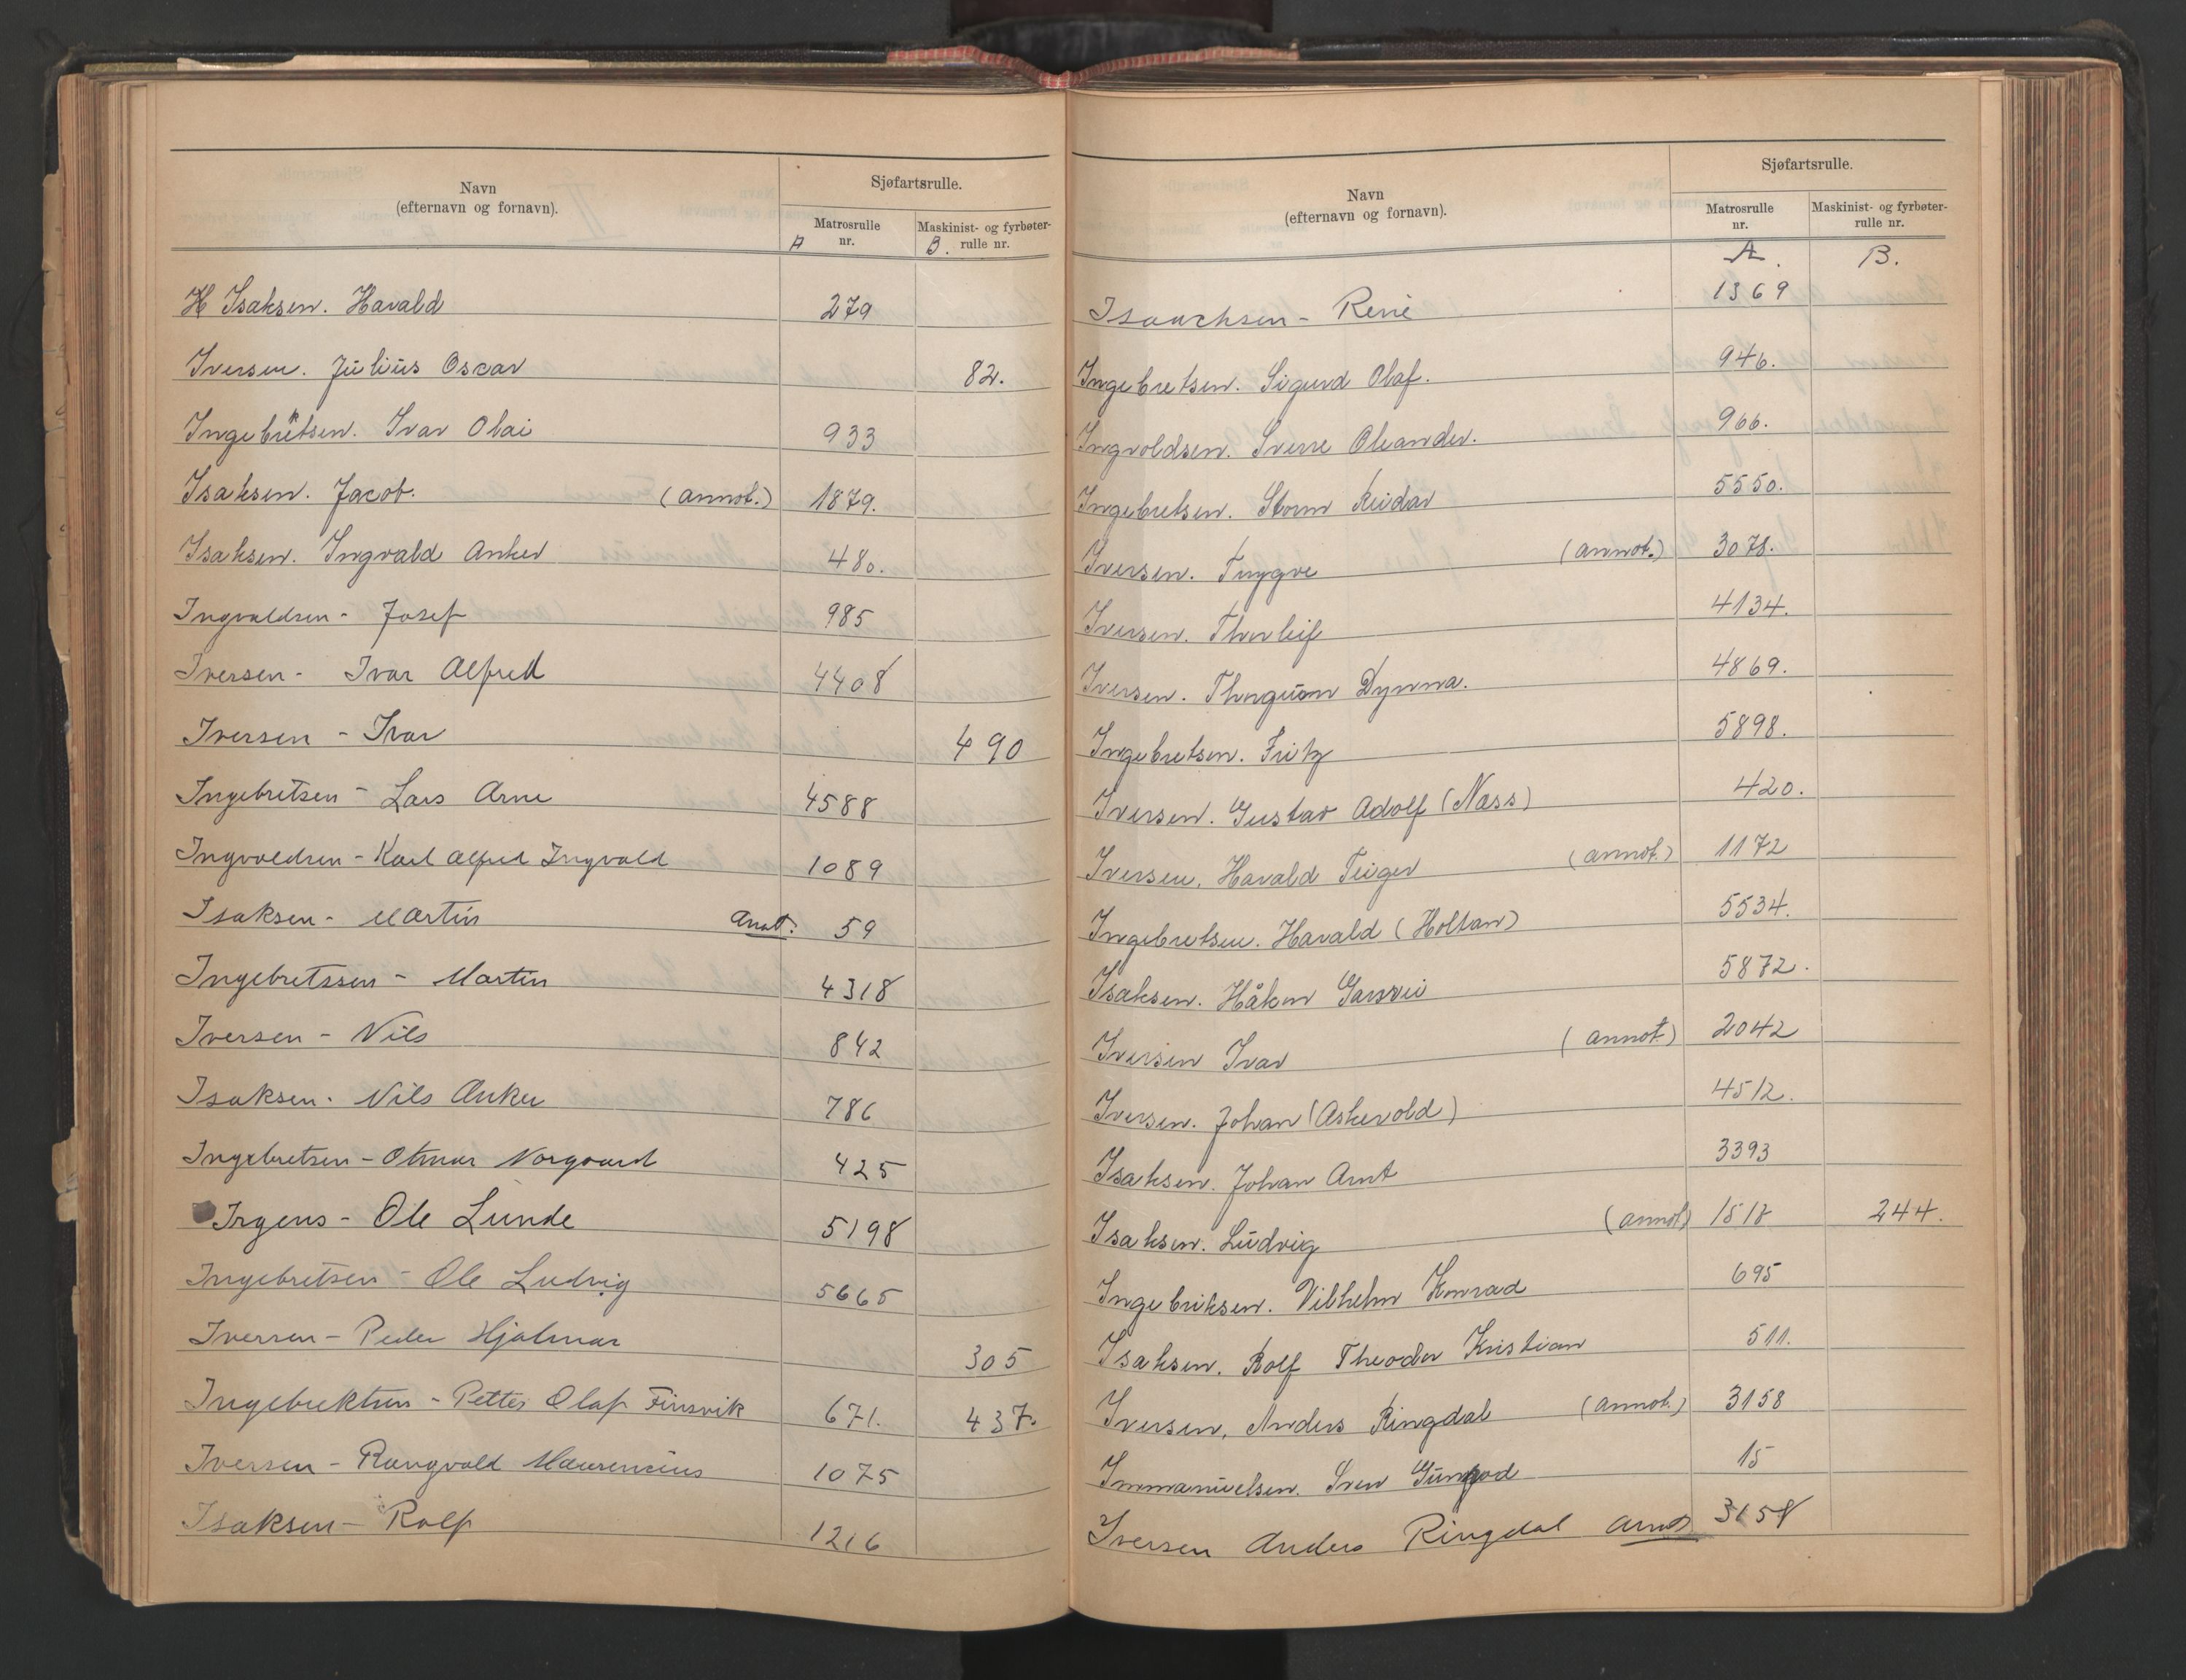 Navn
(efternavn og fornavn).
Sjøfartsrulle.
Matrosrulle
nr.
Maskinist- og fyrbøter-
rulle nr.
A B.
H Isaksen. Harald 279
Iversen. Julius Oscar 82.
Ingebretsen. Ivar Olai 933
Isaksen. Jacob. (annot.) 1879.
Isaksen. Ingvald Anker 480.
Ingvaldsen - Josef 985
Iversen - Ivar Alfred 4408
Iversen - Ivar 490
Ingebretsen - Lars Arne 4588
Ingvaldsen - Karl Alfred Ingvald 1089
Isaksen - Martin Anot. 59
Ingebretssen - Martin 4318
Iversen - Nils 842
Isaksen. Nils Anker 786
Ingebretsen - Otmar Norgaard 425
Irgens - Ole Lunde 5198
Ingebretsen - Ole Ludvig 5665
Iversen - Peder Hjalmar 305
Ingebrektsen - Petter Olaf Finsvik 671. 437.
Iversen - Rangvald Maurencius 1075
Isaksen - Rolf 1216
Navn
(efternavn og fornavn).
Sjøfartsrulle.
Matrosrulle
nr.
Maskinist- og fyrbøter-
rulle nr.
A. B.
Isaachsen - René 1369
Ingebretsen. Sigurd Olaf. 946.
Ingvoldsen. Sverre Oleander. 966.
Ingebretsen. Storm Reidar 5550.
Iversen. Trygve (annot.) 3078.
Iversen. Thorleif 4134.
Iversen. Thorgunn Dynna. 4869.
Ingebretsen. Fritz 5898.
Iversen. Gustav Adolf (Næss) 420.
Iversen. Harald Teiger (annot.) 1172
Ingebretsen. Harald (Holtan) 5534.
Isaksen. Håkon 5872.
Iversen Ivar (annot.) 2042
Iversen. Johan (Askevold) 4512.
Isaksen. Johan Arnt 3393
Isaksen. Ludvig (annot) 1518 244.
Ingebriksen. Vilhelm Konrad 695
Isaksen. Rolf Theodor Kristian 511.
Iversen, Anders Ringdal (annot.) 3158
Immanuelsen. Sven 15
Iversen Anders Ringdal annot 3158